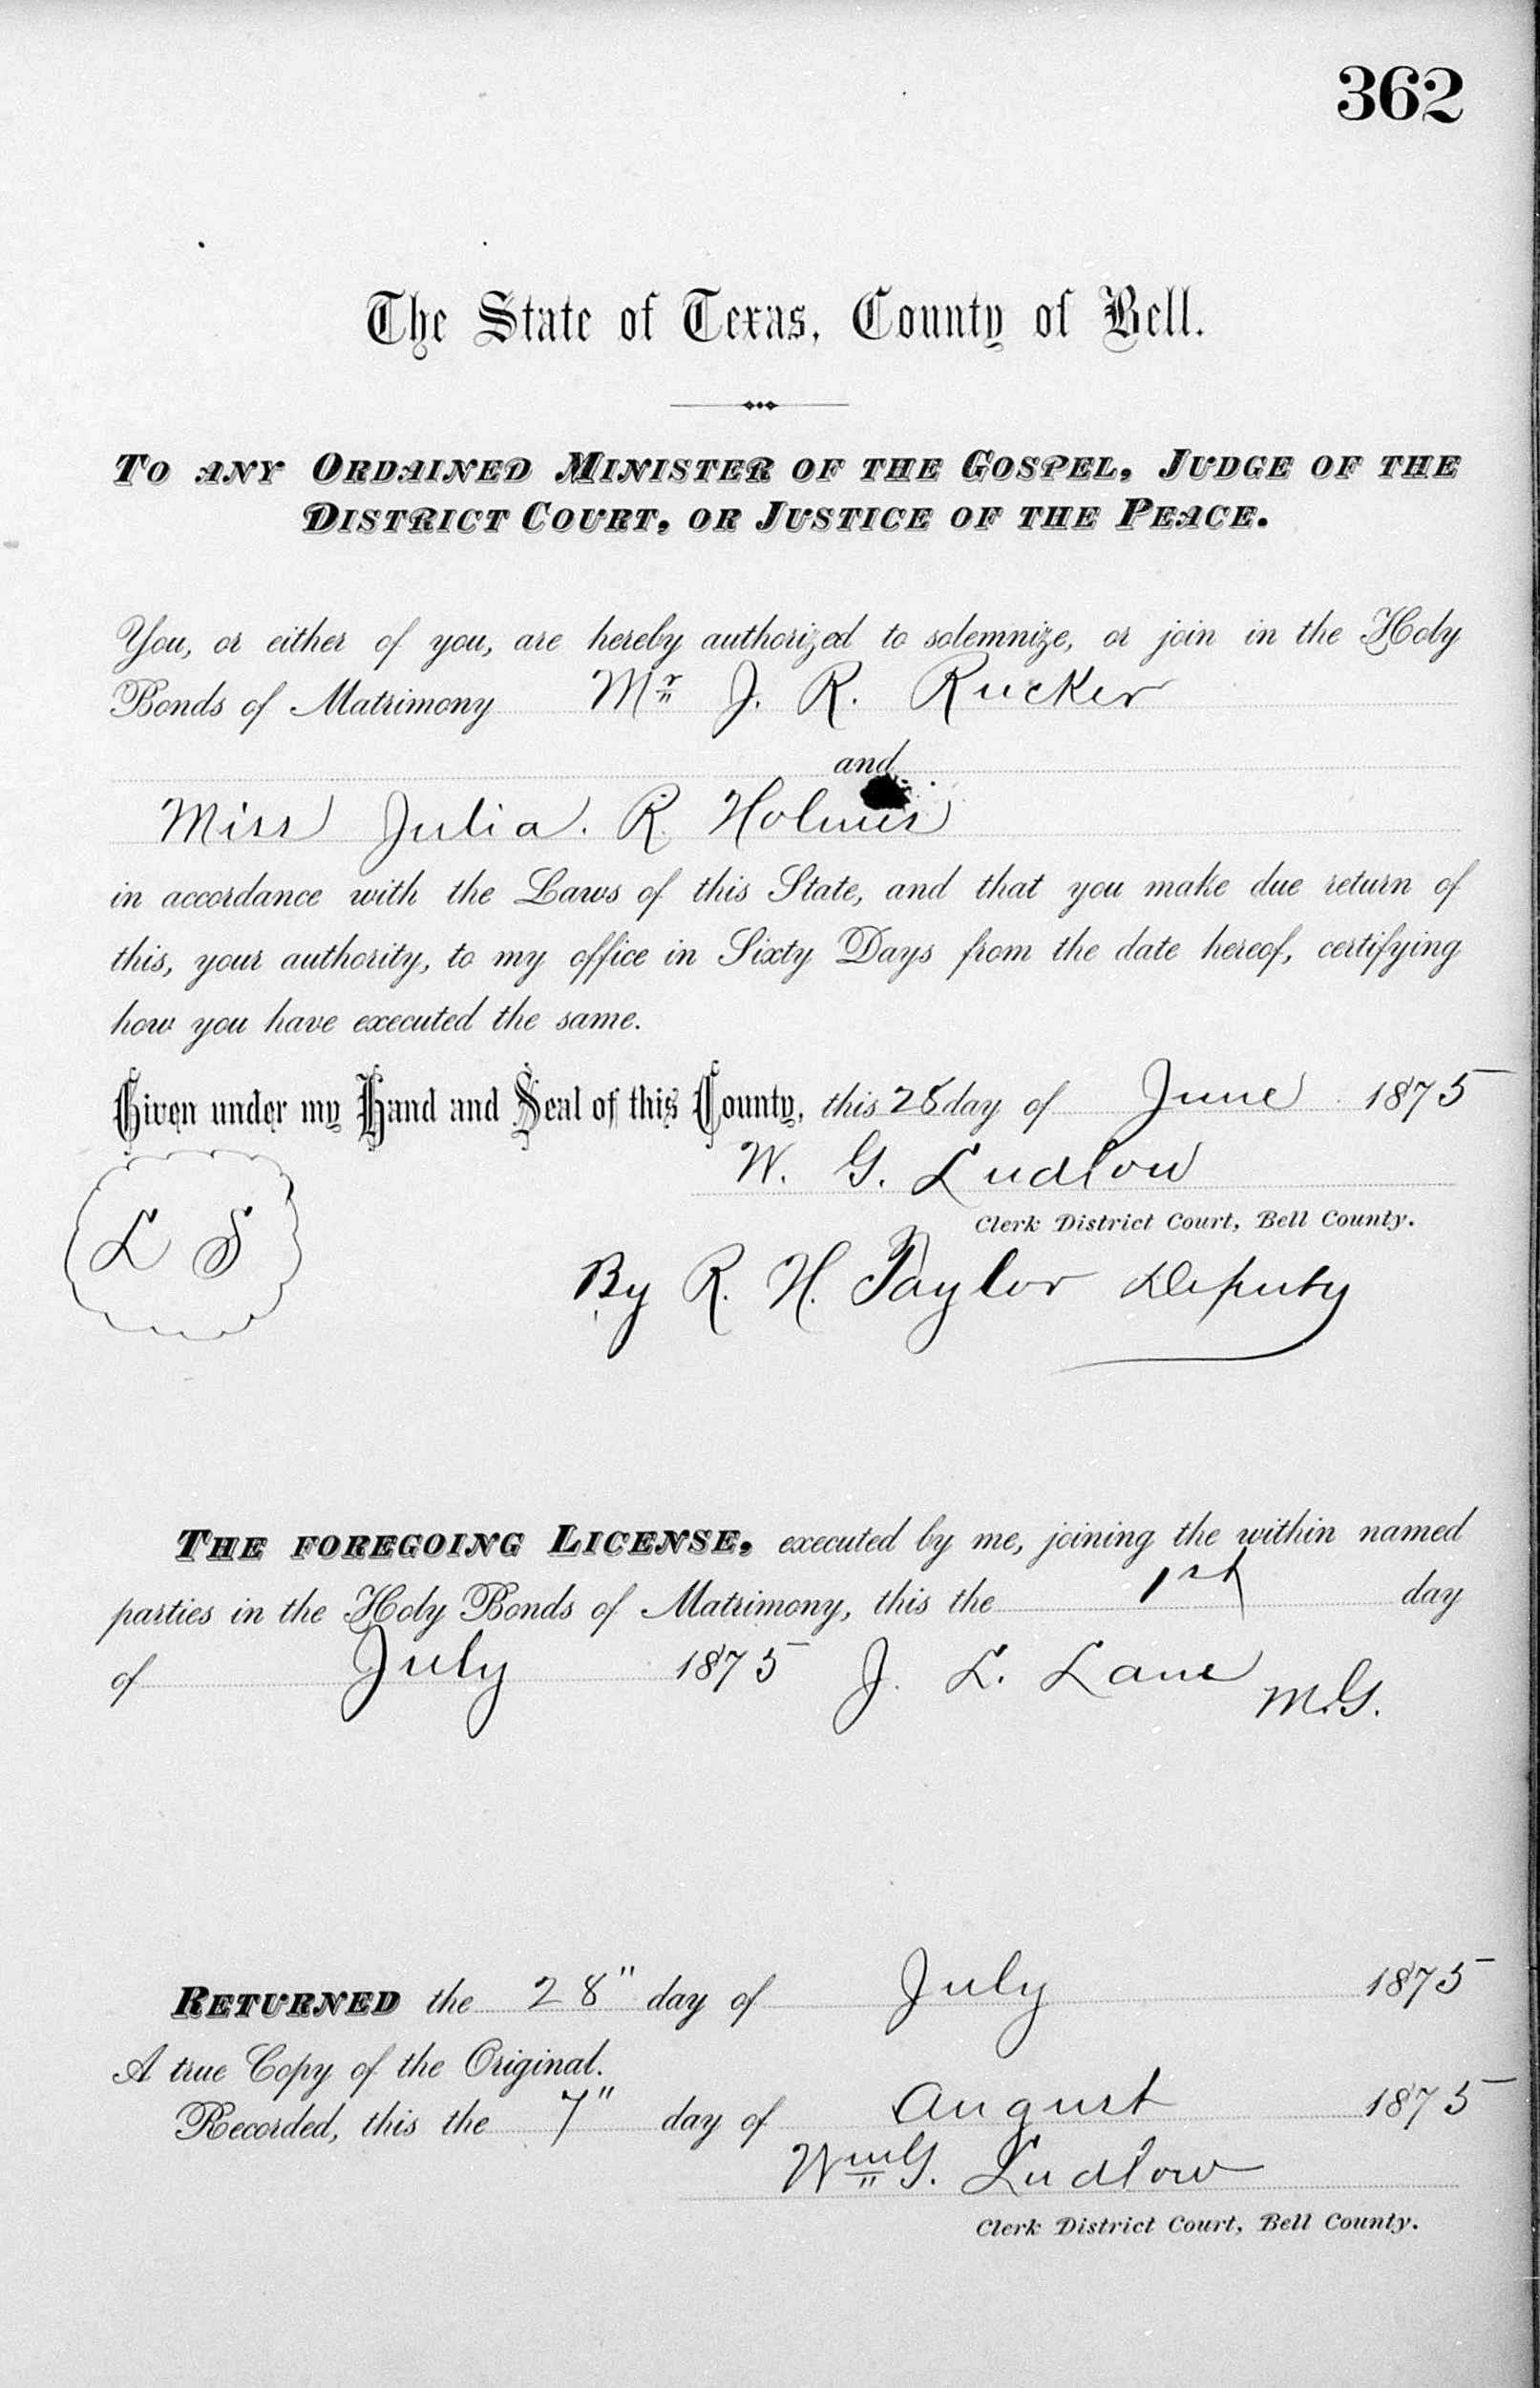 362
The State of Texas, County of Bell.
To any Ordained Minister of the Gospel, Judge of the
District Court, or Justice of the Peace.
You, or either of you, are hereby authorized to solemnize, or join in the Holy
Bonds of Matrimony Mr J. R. Rucker
and
Miss Julia. R. Holmes
in accordance with the Laws of this State, and that you make due return of
this, your authority, to my office in Sixty Days from the date hereof, certifying
how you have executed the same.
Given under my Hand and Seal of this County, this 28 day of June 1875
W. G. Ludlow
Clerk District Court, Bell County.
L S
By R. H. Taylor Deputy
The foregoing License, executed by me, joining the within named
parties in the Holy Bonds of Matrimony, this the 1st day
of July 1875 J. L. Lane M.G.
Returned the 28" day of July 1875
A true Copy of the Original.
Recorded, this the 7" day of August 1875
Wm G. Ludlow
Clerk District Court, Bell County.